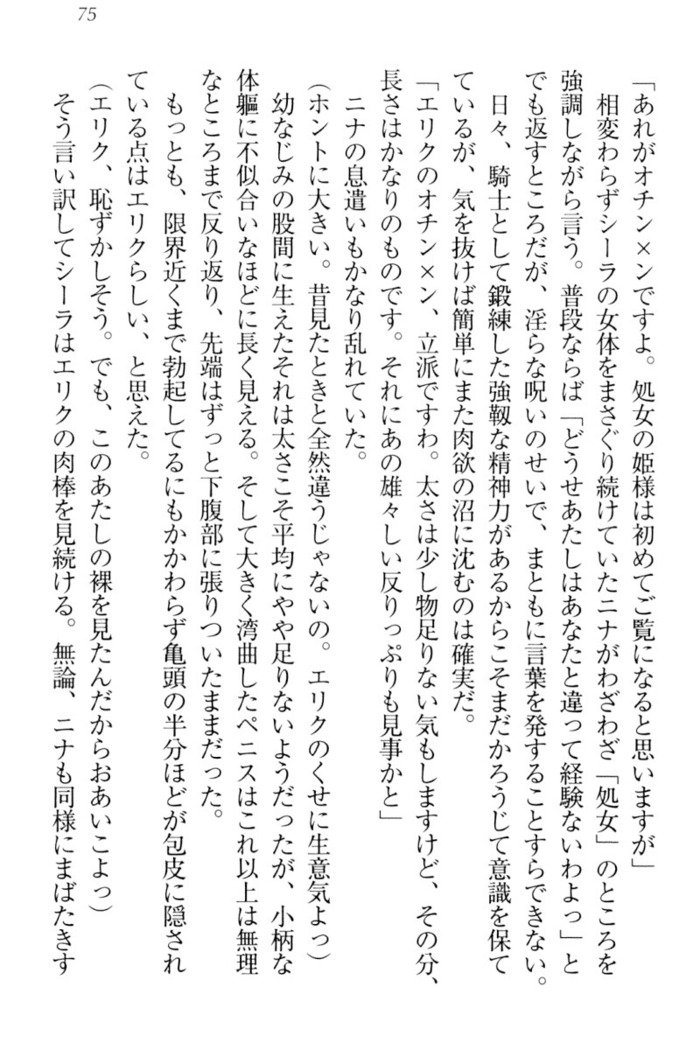 75
「あれがオチン×ンですよ。処女の姫様は初めてご覧になると思いますが」
相変わらずシーラの女体をまさぐり続けていたニナがわざわざ「処女」のところを
強調しながら言う。普段ならば「どうせあたしはあなたと違って経験ないわよっ」と
でも返すところだが、淫らな呪いのせいで、まともに言葉を発することすらできない。
日々、騎士として鍛練した強靱な精神力があるからこそまだかろうじて意識を保て
ているが、気を抜けば簡単にまた肉欲の沼に沈むのは確実だ。
「エリクのオチン×ン、立派ですわ。太さは少し物足りない気もしますけど、その分、
長さはかなりのものです。それにあの雄々しい反りっぷりも見事かと」
ニナの息遣いもかなり乱れていた。
（ホントに大きい。昔見たときと全然違うじゃないの。エリクのくせに生意気よっ）
幼なじみの股間に生えたそれは太さこそ平均にやや足りないようだったが、小柄な
体軀に不似合いなほどに長く見える。そして大きく湾曲したペニスはこれ以上は無理
なところまで反り返り、先端はずっと下腹部に張りついたままだった。
もっとも、限界近くまで勃起してるにもかかわらず亀頭の半分ほどが包皮に隠され
ている点はエリクらしい、と思えた。
（エリク、恥ずかしそう。でも、このあたしの裸を見たんだからおあいこよっ）
そう言い訳してシーラはエリクの肉棒を見続ける。無論、ニナも同様にまばたきす